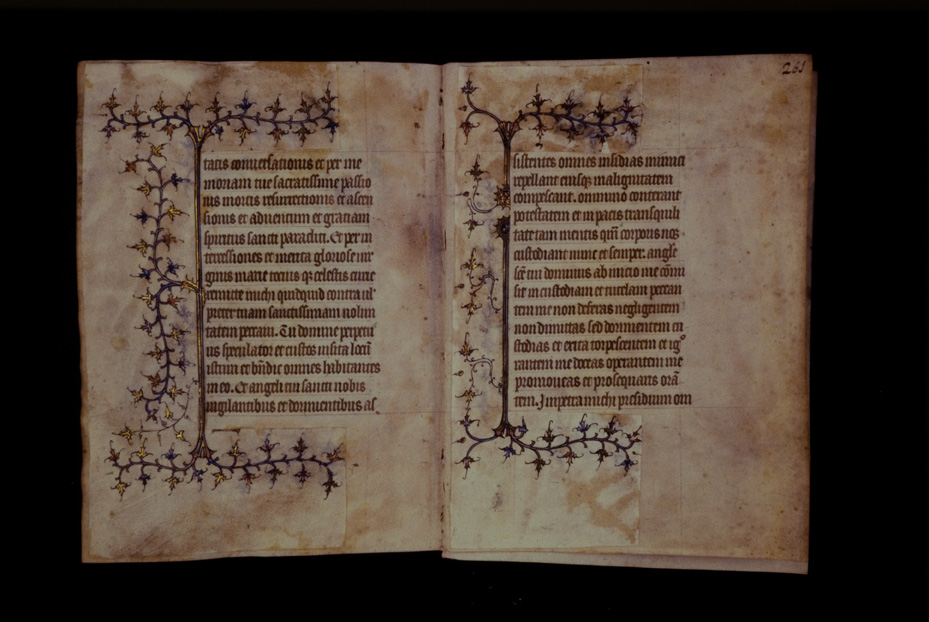 tacis conversationis et per me
moriam tue sacratissime passio
nis mortis resurrectionis et ascen
sionis et adventum et gratiam
spiritus sancti paracliti. Et per in
tercessiones et merita gloriose vir
ginis marie
remitte michi quidquid contra
preter tuam sanctissimam volun
tatem peccavi. Tu domine perpetu
us speculator et custos visita locū
istum et bn̄dic omnes habitantes
in eo. Et angeli tui sancti nobis
vigilantibus et dormientibus as
261
sistentes omnes insidias inimici
repellant eiusqꝫ malignitatem
compescant. omnino conterant
potestatem et in pacis transquili
tate tam mentis qm̄ corporis nos
custodiant nunc et semper. angle
sc̄e cui dominus ab inicio me
sit in custodiam et
tem me non deseras negligentem
non dimittas sed dormientem cu
stodias et erica torpescentem et igͦ
rantem me doceas operantem me
promoveas et prosequaris orā
tem. Impetra michi presidium om